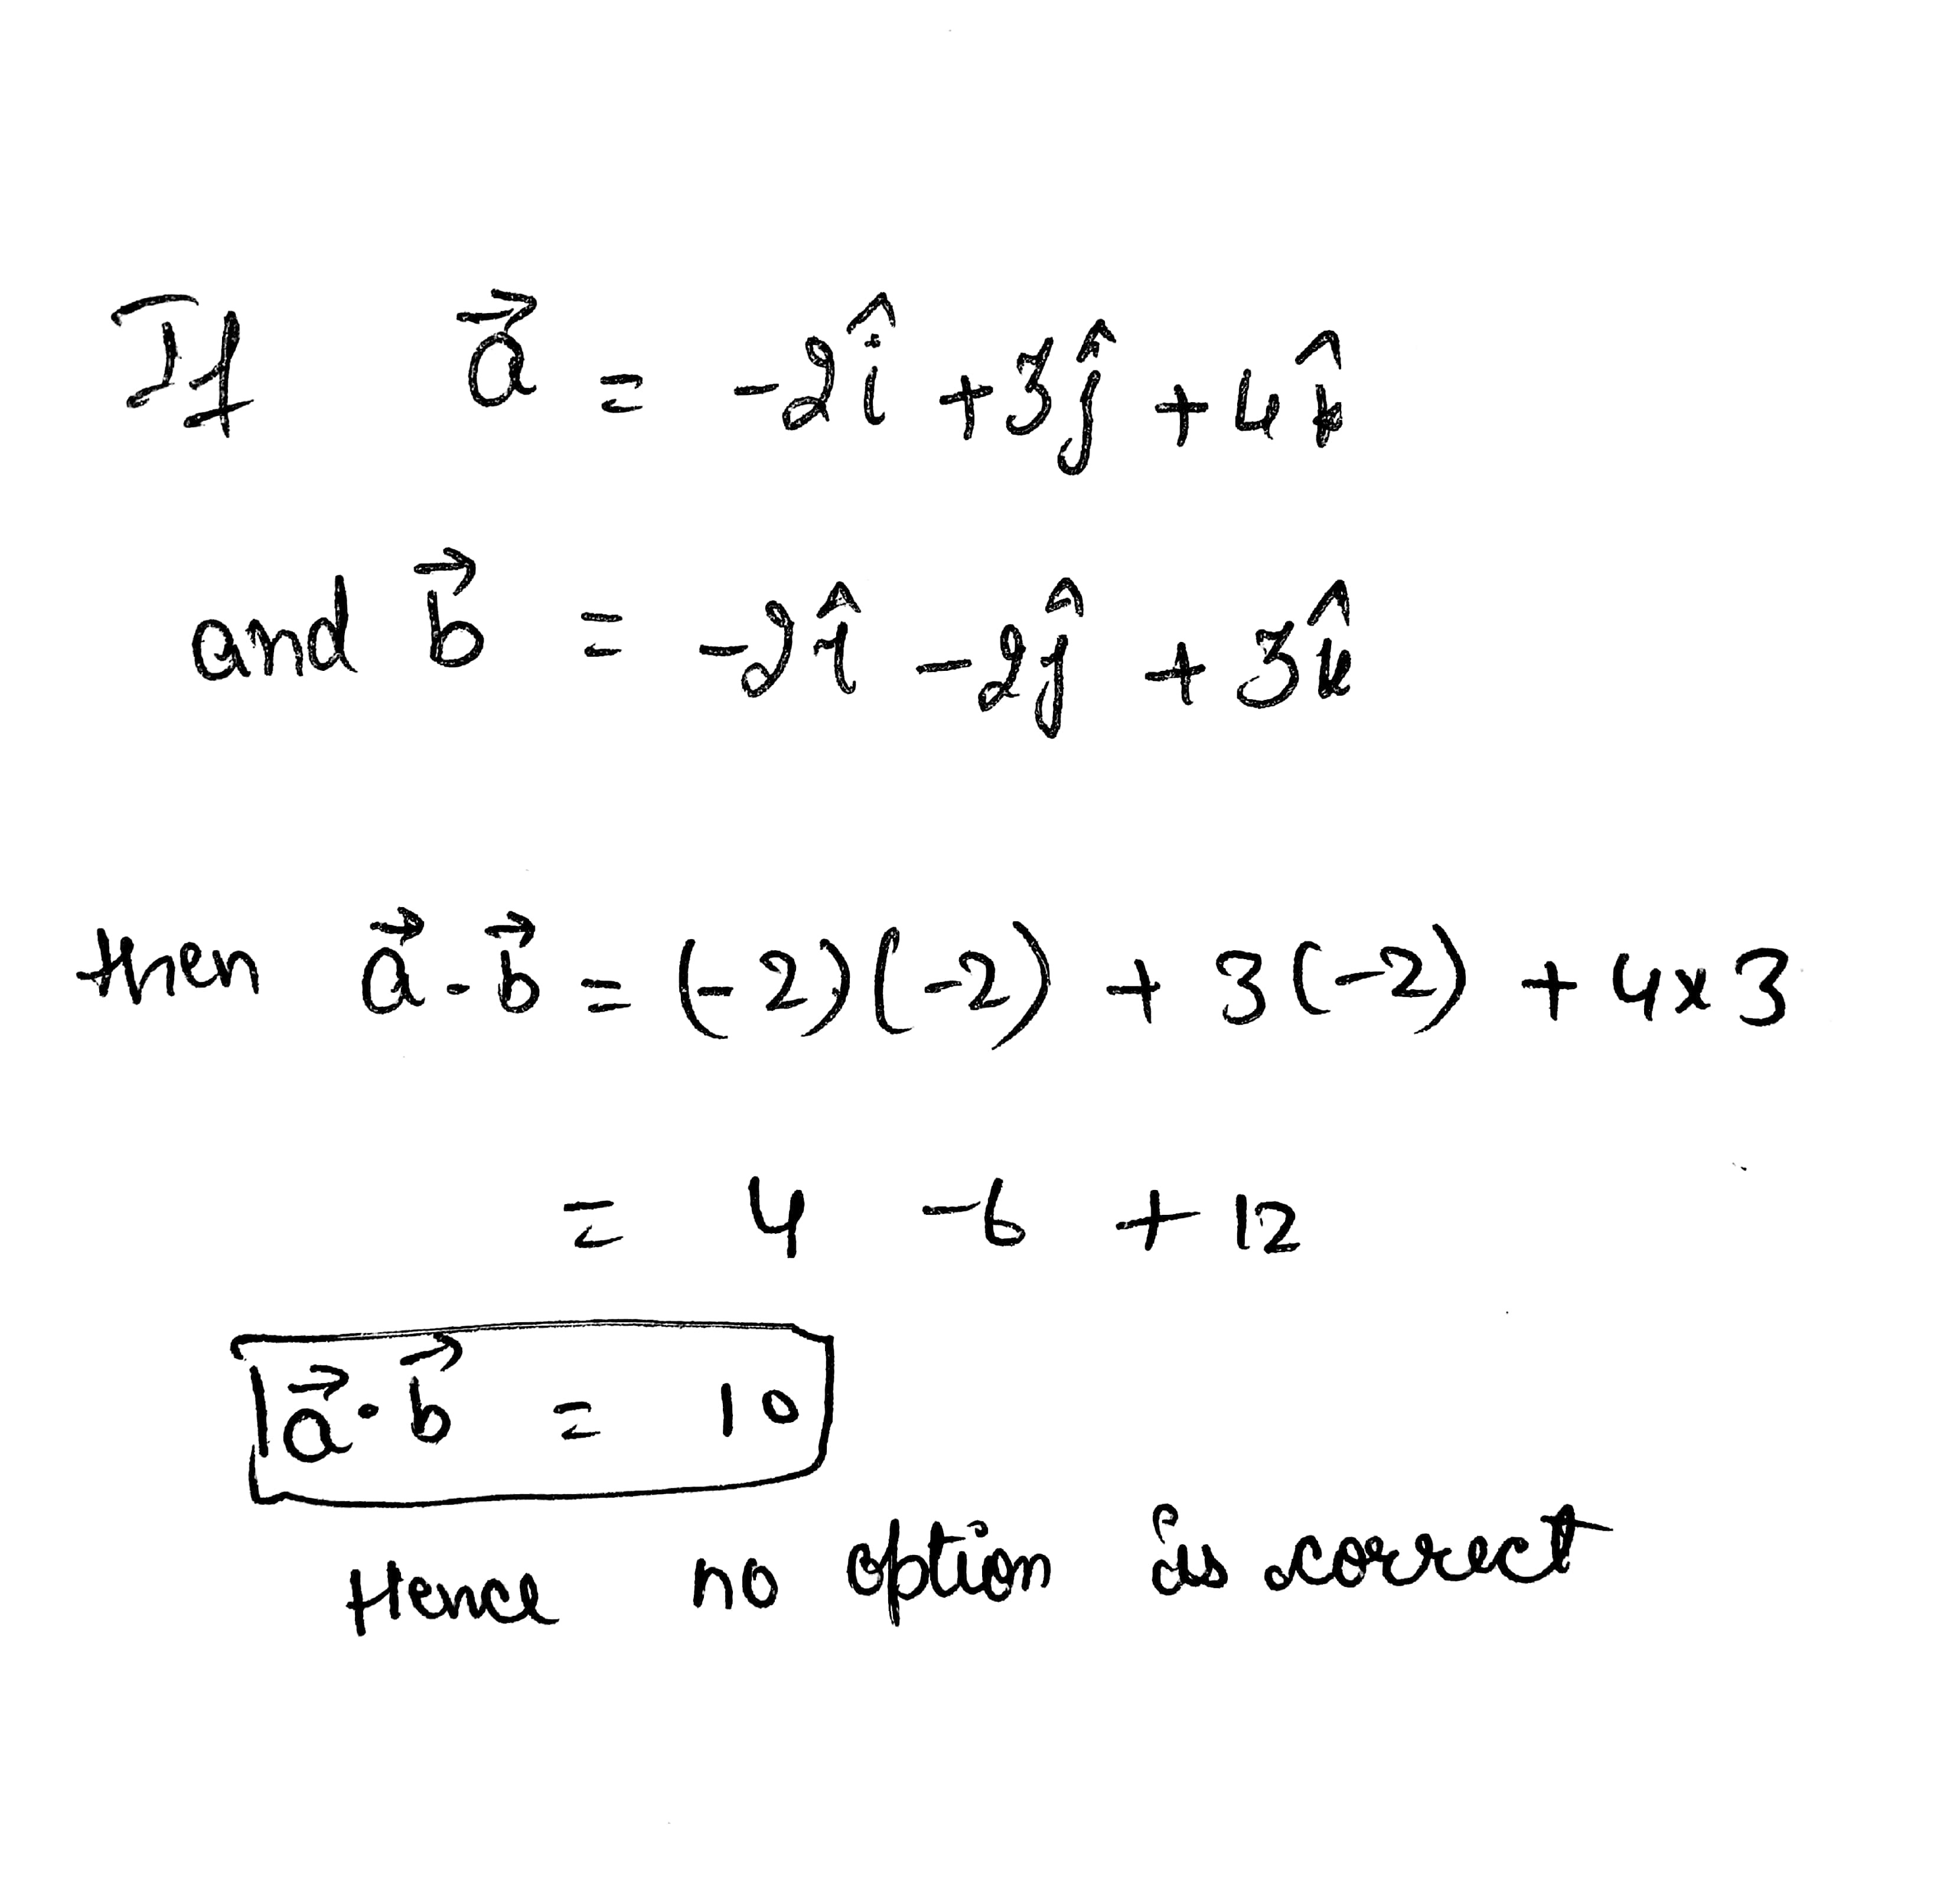 If a⃗ = -2î + 3ĵ + 4k̂
and b⃗ = -2î - 2ĵ + 3k̂
then a⃗.b⃗ = (-2)(-2) + 3(-2) + 4x3
= 4 -6 + 12
a⃗.b⃗ = 10
Hence no option is correct